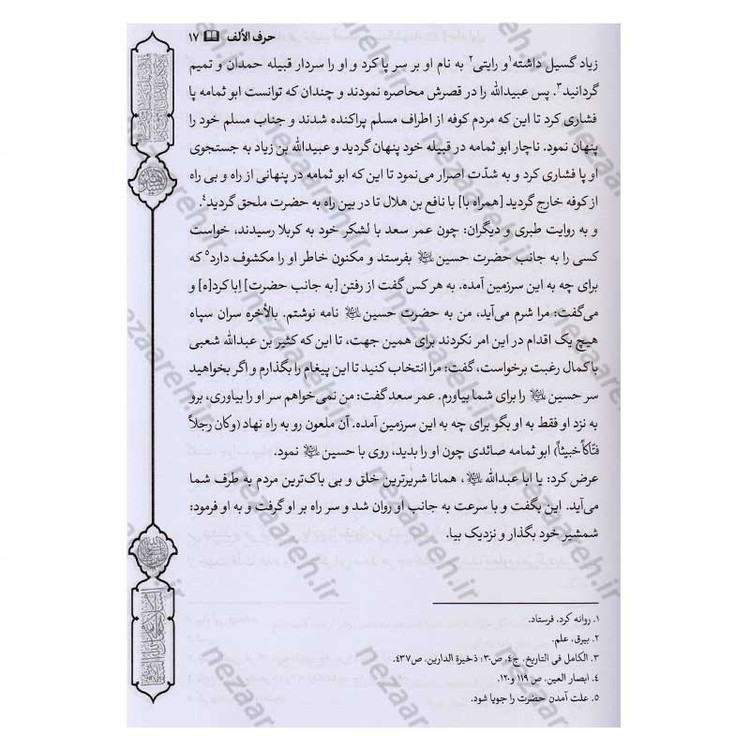 حرف الألف ۱۷
زیاد گسیل داشته۱ و رایتی۲ به نام او بر سر پا کرد و او را سردار قبیله حمدان و تمیم
گردانید۳. پس عبیدالله را در قصرش محاصره نمودند و چندان که توانست ابو ثمامه پا
فشاری کرد تا این که مردم کوفه از اطراف مسلم پراکنده شدند و جناب مسلم خود را
پنهان نمود. ناچار ابو ثمامه در قبیله خود پنهان گردید و عبیدالله بن زیاد به جستجوی
او پا فشاری کرد و به شدّت اصرار می‌نمود تا این که ابو ثمامه در پنهانی از راه و بی راه
از کوفه خارج گردید [همراه با] با نافع بن هلال تا در بین راه به حضرت ملحق گردید۴.
و به روایت طبری و دیگران: چون عمر سعد با لشکر خود به کربلا رسیدند، خواست
کسی را به جانب حضرت حسین علیه السلام بفرستد و مکنون خاطر او را مکشوف دارد۵ که
برای چه به این سرزمین آمده. به هر کس گفت از رفتن [به جانب حضرت] إبا کرد[ه] و
می‌گفت: مرا شرم می‌آید، من به حضرت حسین علیه السلام نامه نوشتم. بالأخره سران سپاه
هیچ یک اقدام در این امر نکردند برای همین جهت، تا این که کثیر بن عبدالله شعبی
با کمال رغبت برخواست، گفت: مرا انتخاب کنید تا این پیغام را بگذارم و اگر بخواهید
سر حسین علیه السلام را برای شما بیاورم. عمر سعد گفت: من نمی‌خواهم سر او را بیاوری، برو
به نزد او فقط به او بگو برای چه به این سرزمین آمده. آن ملعون رو به راه نهاد (وکان رجلاً
فتّاکاً خبیثاً) ابو ثمامه صائدی چون او را بدید، روی با حسین علیه السلام نمود.
عرض کرد: یا ابا عبدالله علیه السلام، همانا شریرترین خلق و بی باک‌ترین مردم به طرف شما
می‌آید. این بگفت و با سرعت به جانب او روان شد و سر راه بر او گرفت و به او فرمود:
شمشیر خود بگذار و نزدیک بیا.
۱. روانه کرد، فرستاد.
۲. بیرق، علم.
۳. الکامل فی التاریخ، ج۴، ص۳۰؛ ذخیرة الدارین، ص۴۳۷.
۴. ابصار العین، ص ۱۱۹ و۱۲۰.
۵. علت آمدن حضرت را جویا شود.
nezaareh.ir